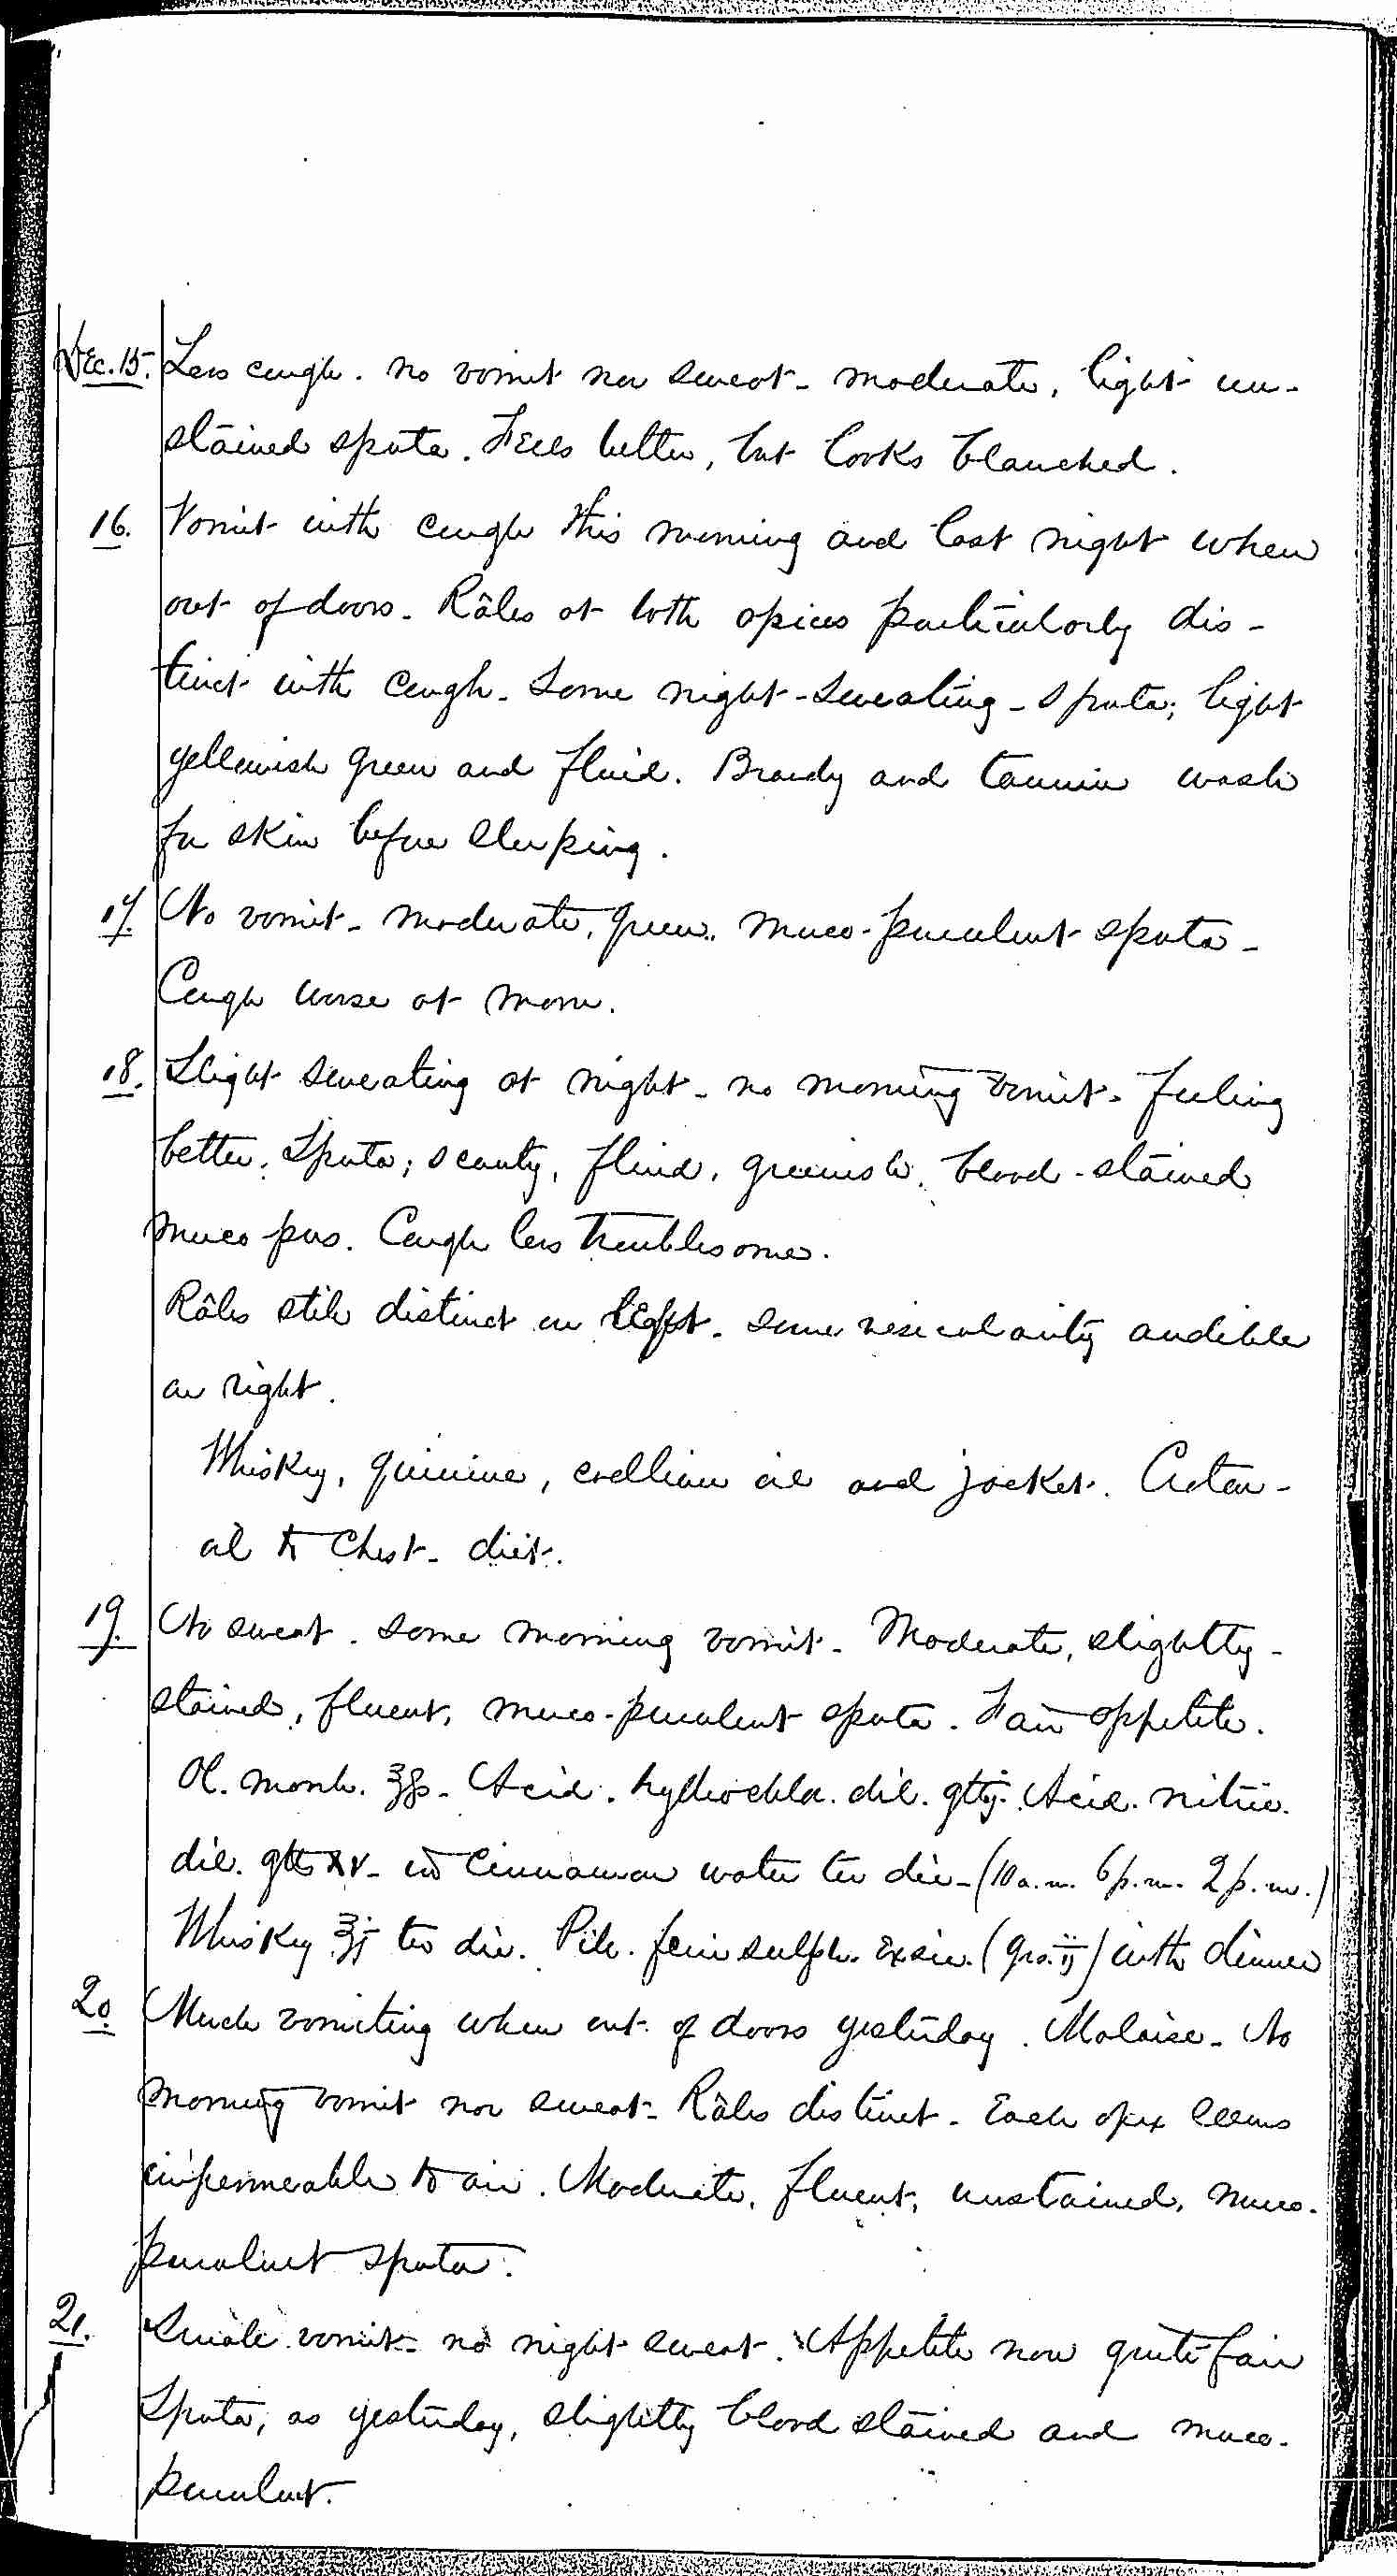 Dec. 15. Less cough. no vomit nor sweat - moderate, light un-
stained sputa. Feels better, but looks blanched.
16. Vomit with cough this morning and last night when
out of doors. Râles at both apices particularly dis-
tinct with cough. Some night-sweating - Sputa; light
yellowish green and fluid. Brandy and tannin wash
for skin before sleeping.
17. No vomit - moderate, green, muco-purulent sputa -
Cough worse at morn.
18. Slight sweating at night - no morning vomit. feeling
better. Sputa; scanty, fluid, greenish, blood-stained
muco pus. Cough less troublesome.
Râles still distinct on left. some vesicularity audible
on right.
Whiskey, quinine, codliver oil and jacket. Croton-
oil to chest - diet.
19. No sweat. some morning vomit - Moderate, slightly-
stained, fluent, muco-purulent sputa. Fair appetite.
Ol. morrh. ℥ss - Acid. hydrochlor. dil. gttij. Acid. nitric.
dil. gtts xv - in Cinnamon water ter die - (10 a.m. 6 p.m. 2 p.m.)
Whiskey ter die. Pil. ferri sulph. Exsic. (grs. ij) with dinner
20. Much vomiting when out of doors yesterday. Malaise - No
morning vomit nor sweat - Râles distinct - Each apex seems
impermeable to air. Moderate, fluent, unstained, muco-
purulent sputa.
21. Small vomit - no night sweat. Appetite now quite fair
Sputa, as yesterday, slightly blood stained and muco-
purulent.